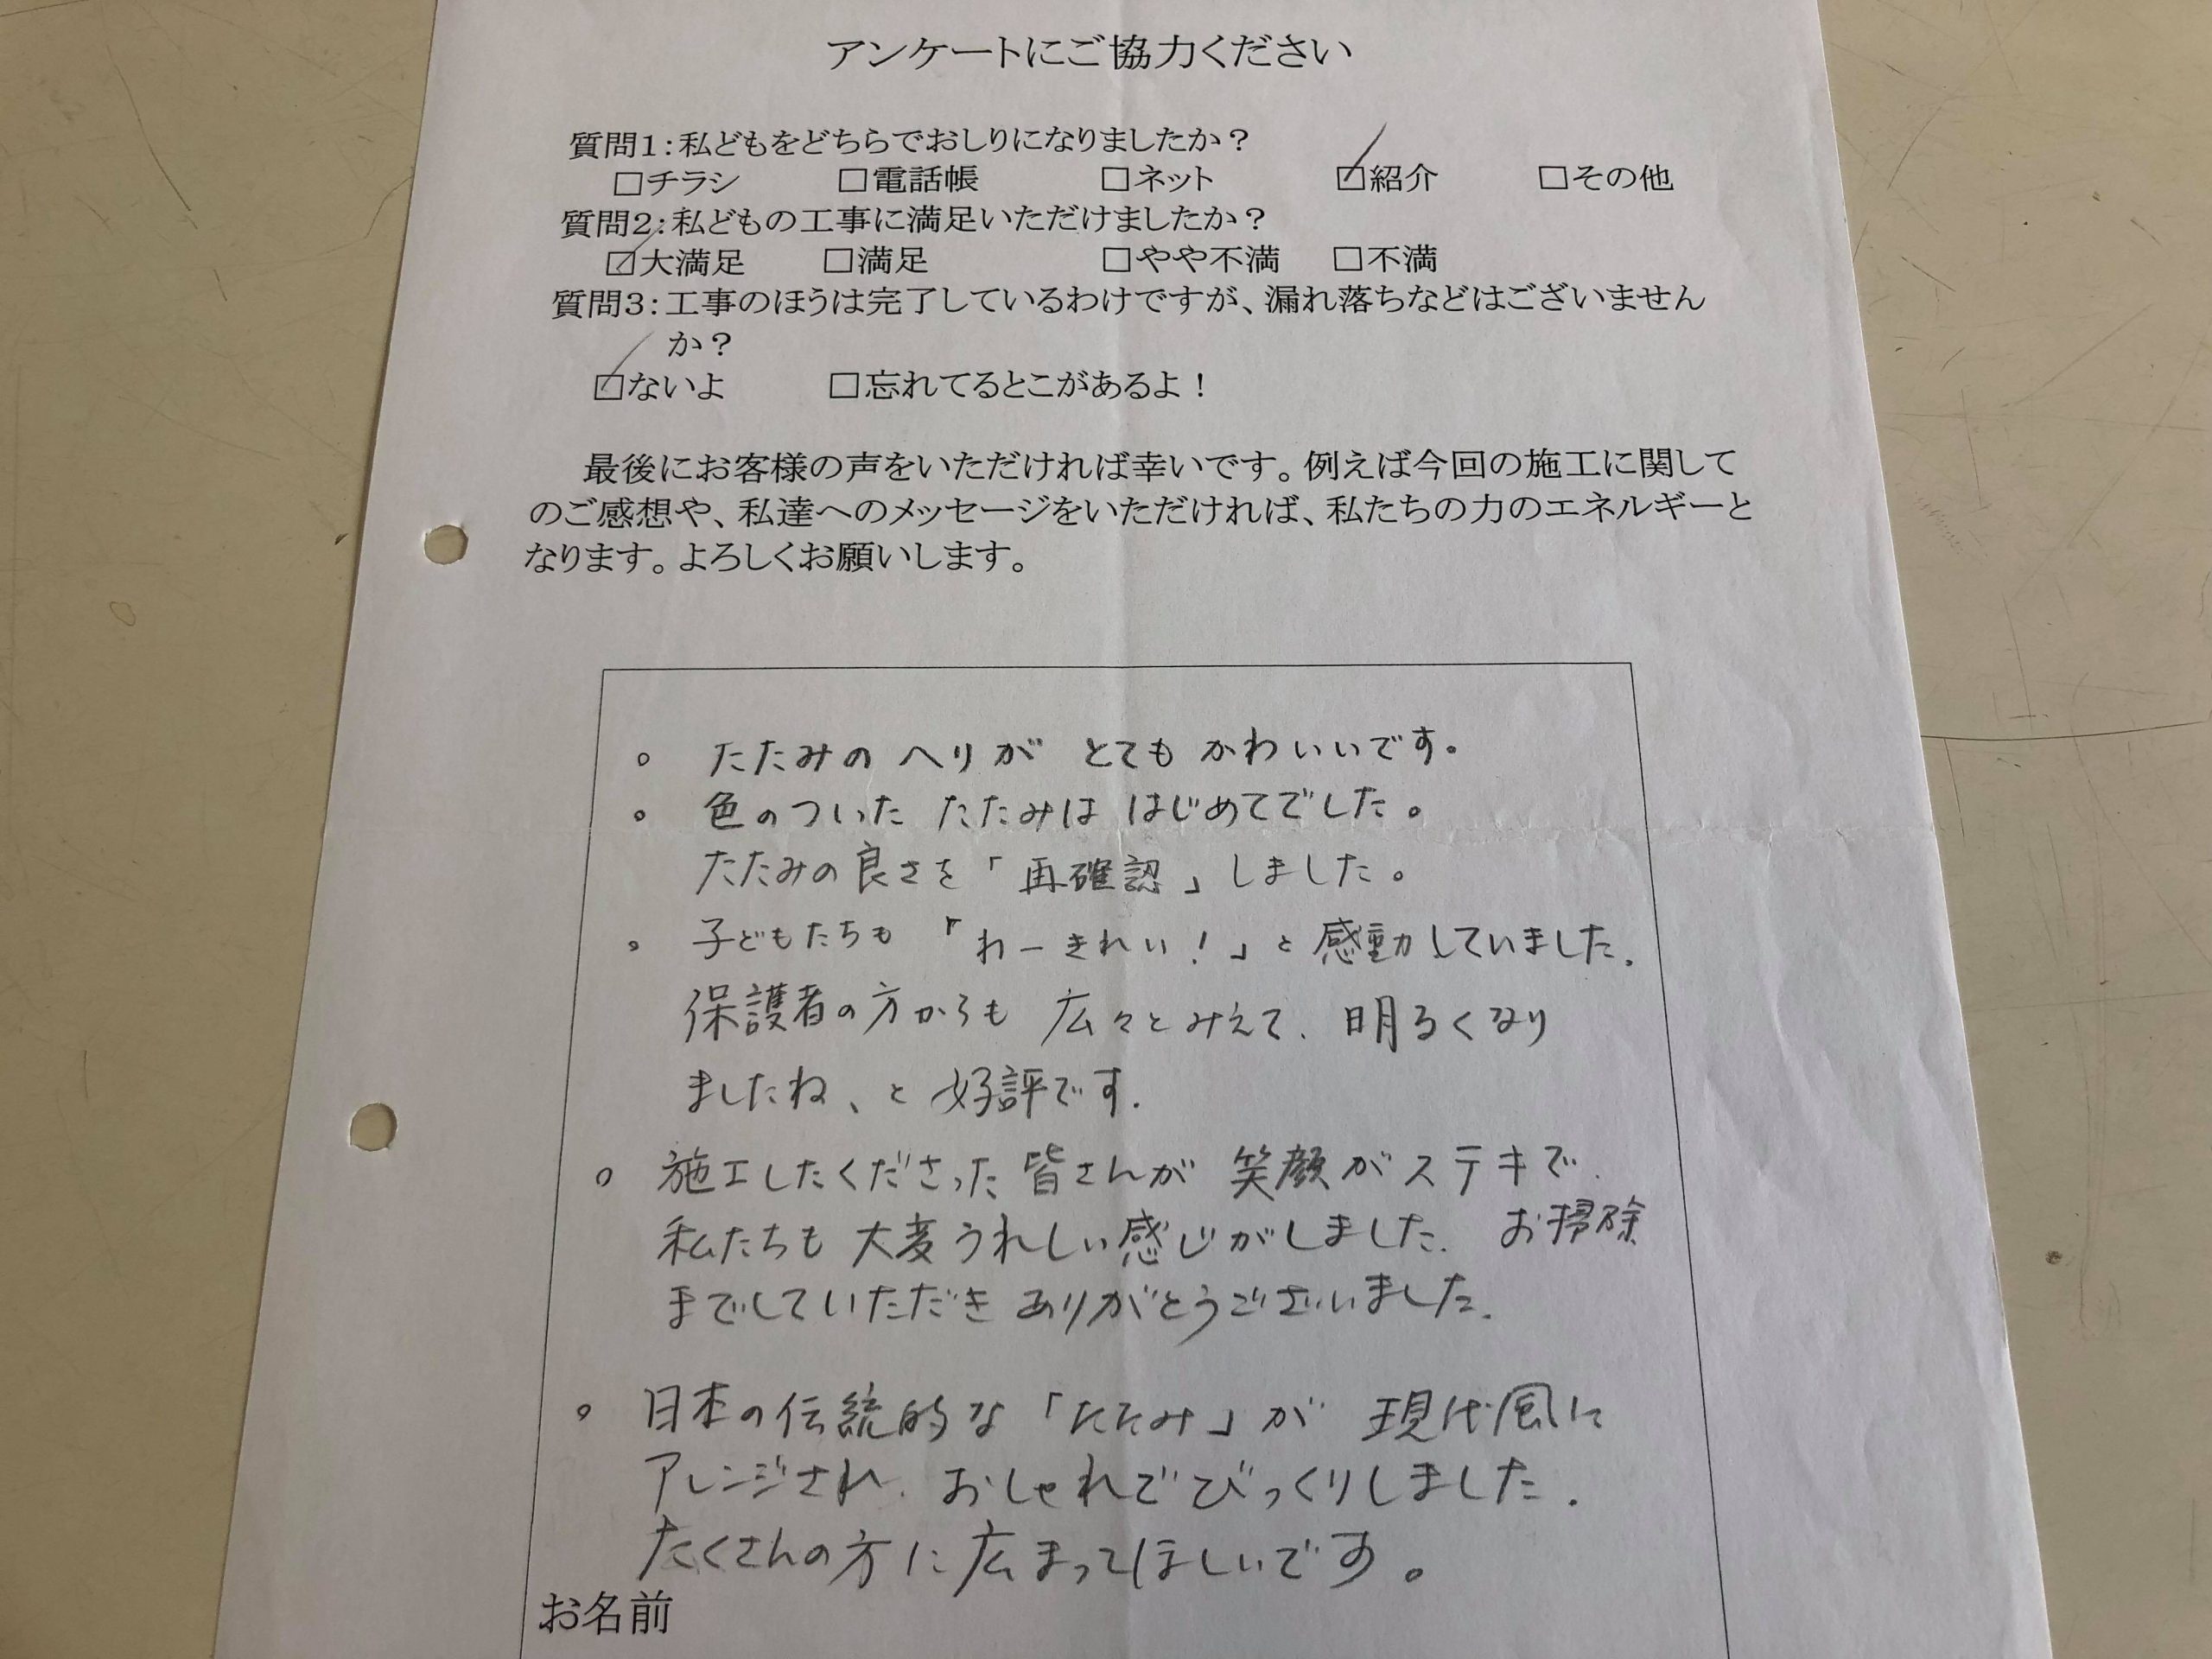 アンケートにご協力ください
質問1：私どもをどちらでおしりになりましたか？
□チラシ □電話帳 □ネット ☑紹介 □その他
質問2：私どもの工事に満足いただけましたか？
☑大満足 □満足 □やや不満 □不満
質問3：工事のほうは完了しているわけですが、漏れ落ちなどはございません
か？
☑ないよ □忘れてるとこがあるよ！
最後にお客様の声をいただければ幸いです。例えば今回の施工に関して
のご感想や、私達へのメッセージをいただければ、私たちの力のエネルギーと
なります。よろしくお願いします。
。 たたみのヘリが とても かわいいです。
。 色のついた たたみは はじめてでした。
たたみの良さを「再確認」しました。
。 子どもたちも「わーきれい！」と感動していました。
保護者の方からも 広々とみえて、明るくなり
ましたね、と好評です。
。 施工したくださった皆さんが 笑顔がステキで、
私たちも大変うれしい感じがしました。お掃除
までしていただき ありがとうございました。
。 日本の伝統的な「たたみ」が 現代風に
アレンジされ、おしゃれでびっくりしました。
たくさんの方に広まってほしいです。
お名前